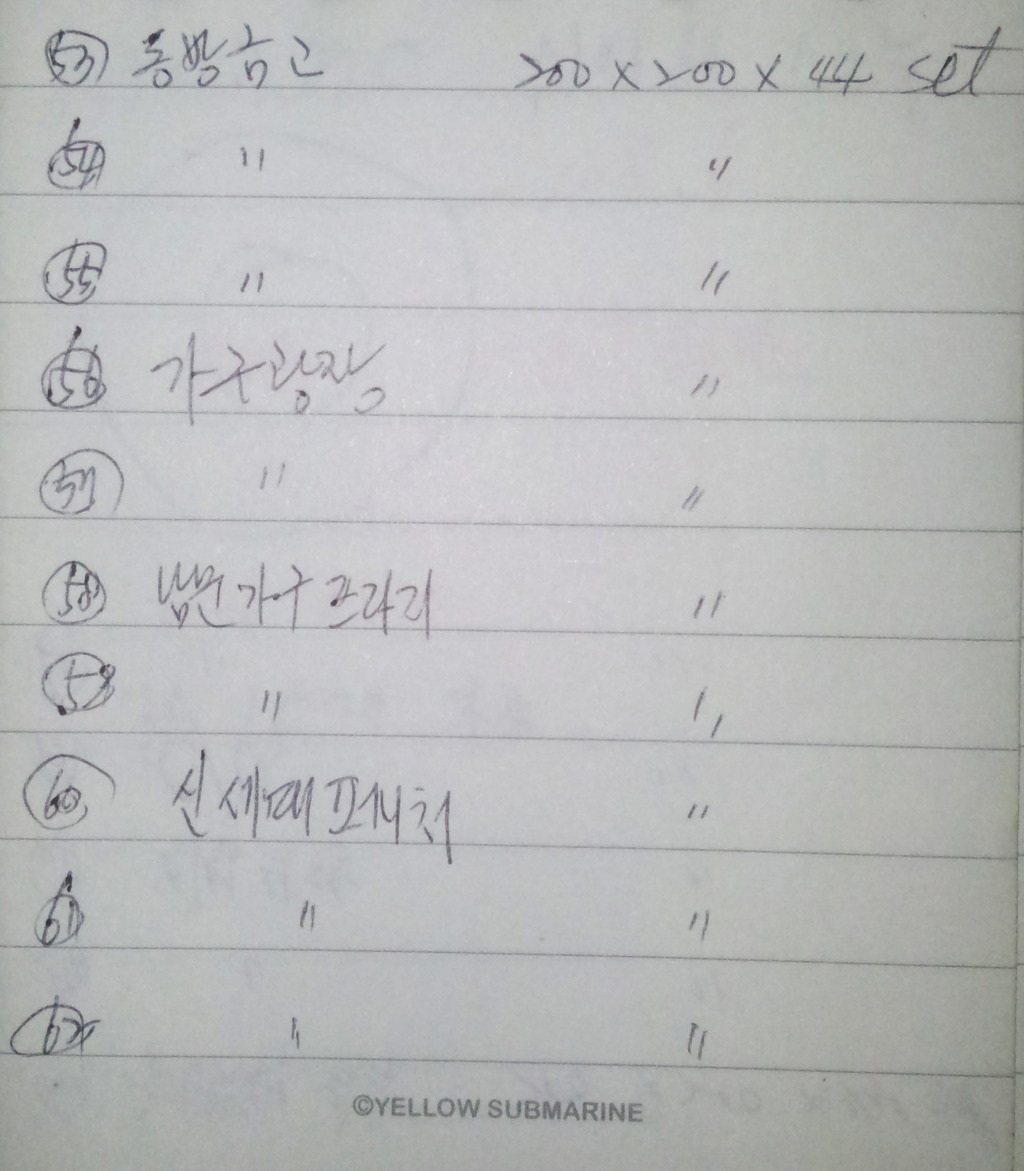 53 동방금고 200 x 200 x 44 set
54 〃 〃
55 〃 〃
56 가구광장 〃
57 〃 〃
58 가구 프라리 〃
59 〃 〃
60 신세대 퍼니처 〃
61 〃 〃
62 〃 〃
©YELLOW SUBMARINE